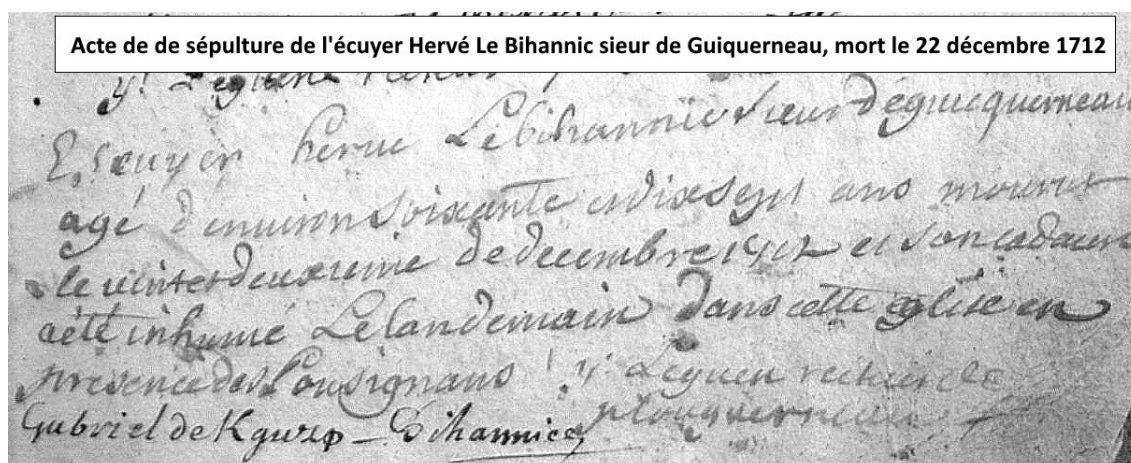 Acte de de sépulture de l'écuyer Hervé Le Bihannic sieur de Guiquerneau, mort le 22 décembre 1712
y. Leguen
Escuyer herue Lebihannic sieur deguicquerneau
agé denuiron soixante et dix sept ans mourut
le uint et deuxieme de decembre 1712 et son cadaure
a été inhumé Le landemain dans cette eglise en
presence des soussignans y. Leguen recteur de
plouguerneau
Gabriel de K - Bihannic